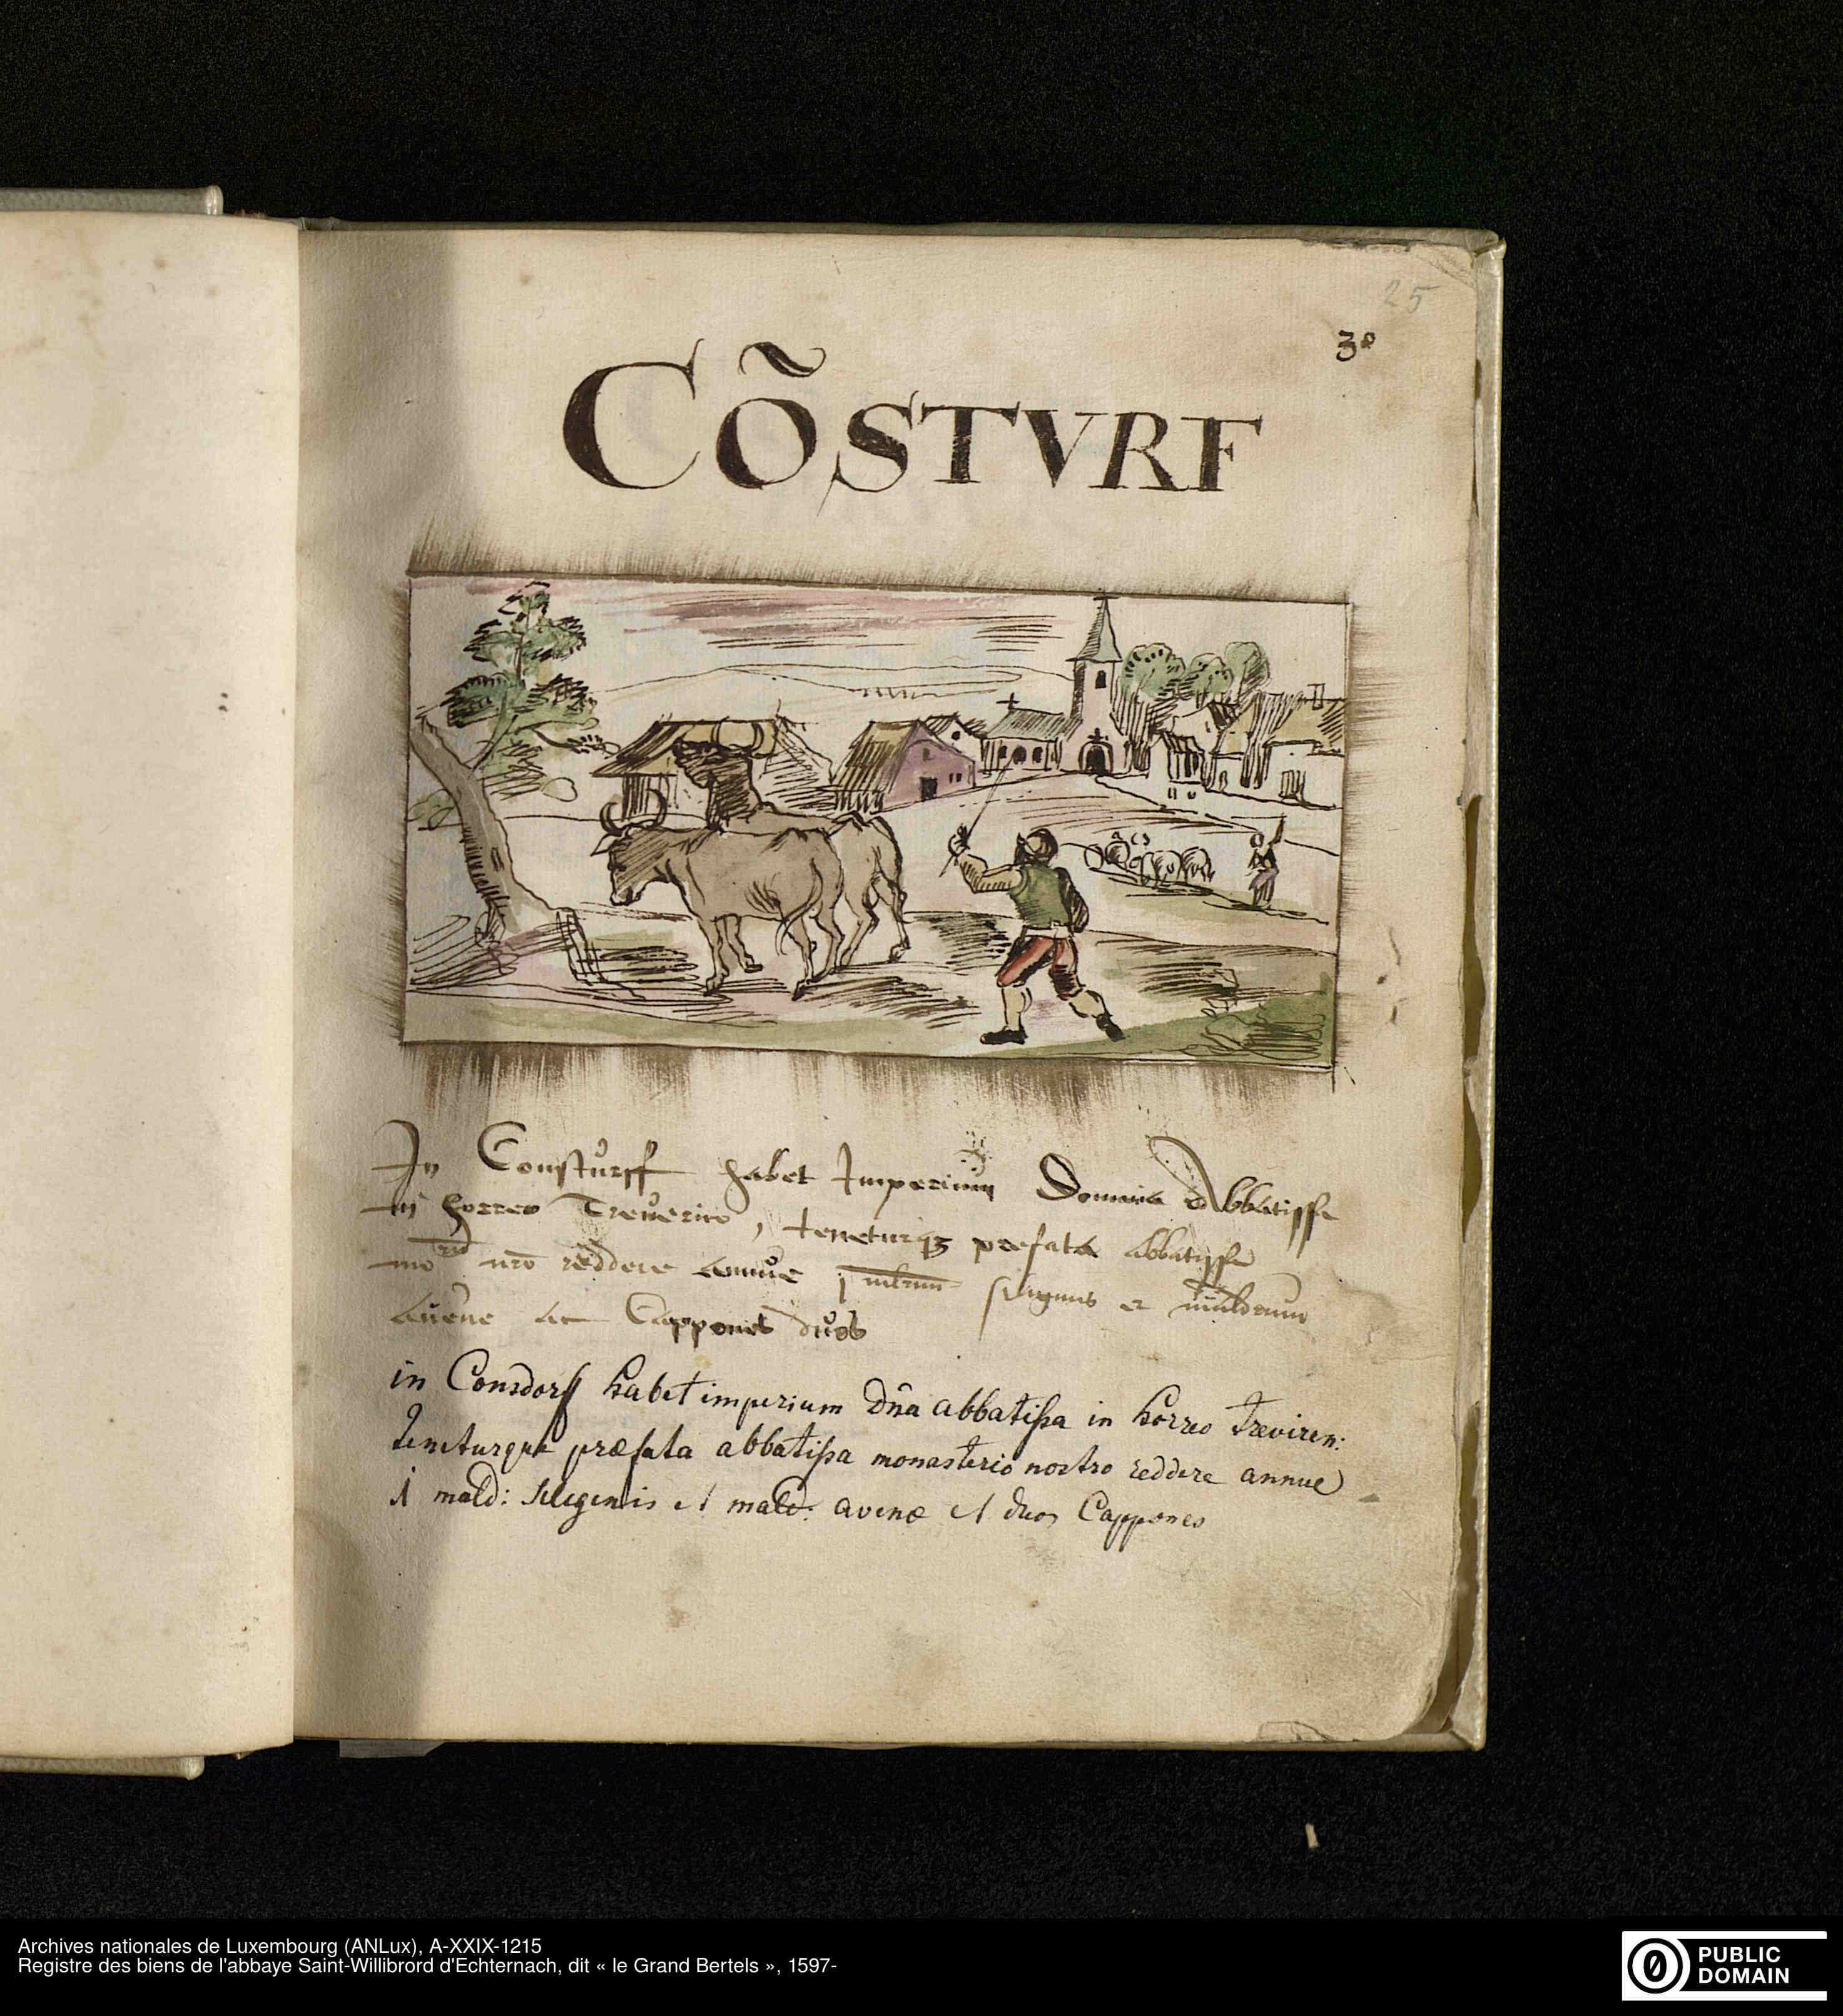 25
30
CÕSTVRF
In Consturff habet Imperium Domina Abbatissa
in horreo Treverico, teneturq3 prefata abbatissa
mōrio nrō reddere annue j mlrum siliginis et mldrum
avene ac Cappones duos
in Consdorff habet imperium Dña abbatißa in horreo Treviren:
teneturque præfata abbatißa monasterio nostro reddere annue
1 mald: seligenis et mald: avenæ et duos Cappones
Archives nationales de Luxembourg (ANLux), A-XXIX-1215
Registre des biens de l'abbaye Saint-Willibrord d'Echternach, dit « le Grand Bertels », 1597-
PUBLIC
DOMAIN